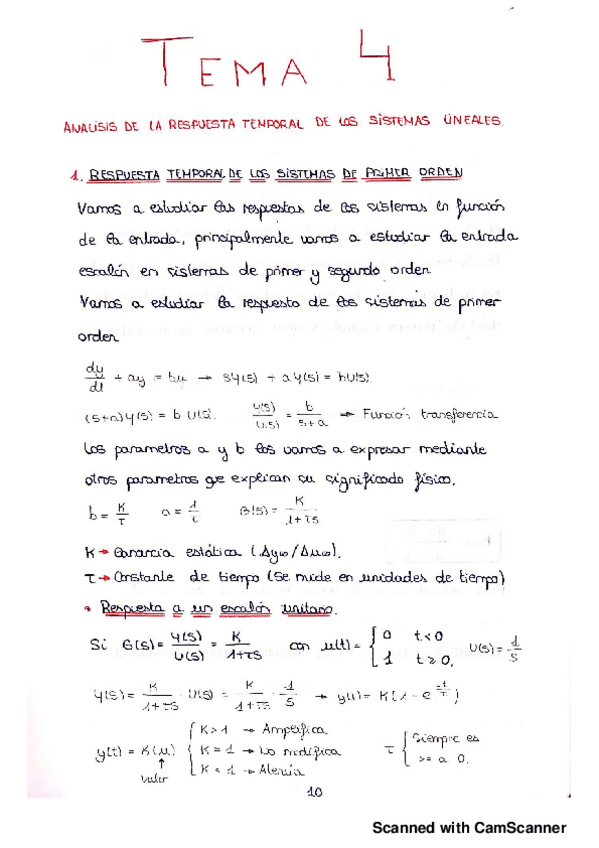 TEMA 4
ANALISIS DE LA RESPUESTA TEMPORAL DE LOS SISTEMAS LINEALES.
1. RESPUESTA TEMPORAL DE LOS SISTEMAS DE PRIMER ORDEN
Vamos a estudiar las respuestas de los sistemas en función
de la entrada, principalmente vamos a estudiar la entrada
escalón en sistemas de primer y segundo orden
Vamos a estudiar la respuesta de los sistemas de primer
orden
dy/dt + ay = bu → sY(s) + aY(s) = bU(s).
(s+a)Y(s) = b U(s). Y(s)/U(s) = b/(s+a) → Función transferencia
Los parametros a y b los vamos a expresar mediante
otros parametros qe explican su significado físico.
b = K/τ a = 1/τ G(s) = K/(1+τs)
K → Ganancia estática (Δy∞/Δu∞).
τ → Constante de tiempo (Se mide en unidades de tiempo)
• Respuesta a un escalón unitario.
Si G(s) = Y(s)/U(s) = K/(1+τs) con u(t) = { 0 t<0 1 t≥0. U(s) = 1/s
Y(s) = K/(1+τs) · U(s) = K/(1+τs) · 1/s → y(t) = K(1 - e^(-t/τ))
y(t) = K(u) { K>1 → Amplifica
K = 1 → Lo modifica
K < 1 → Atenúa
↑
valor
τ { Siempre es
>= a 0.
10
Scanned with CamScanner